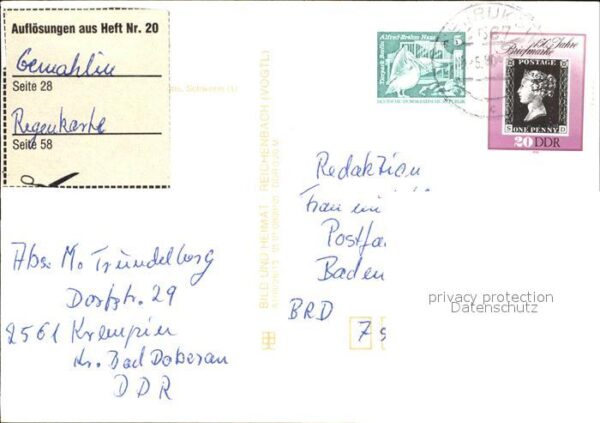 Auflösungen aus Heft Nr. 20
Gemahlin
Seite 28
Regenkarte
Seite 58
Alfred-Brehm-Haus
Tierpark Berlin
5
DEUTSCHE DEMOKRATISCHE REPUBLIK
150 Jahre
Briefmarke
POSTAGE
ONE PENNY
20 DDR
Schwerin
BILD UND HEIMAT REICHENBACH (VOGTL)
Redaktion
Frau
Postfa
Baden
BRD
7
Abs: M. Tründelberg
Dorfstr. 29
2561 Krempin
Kr. Bad Doberan
DDR
privacy protection
Datenschutz